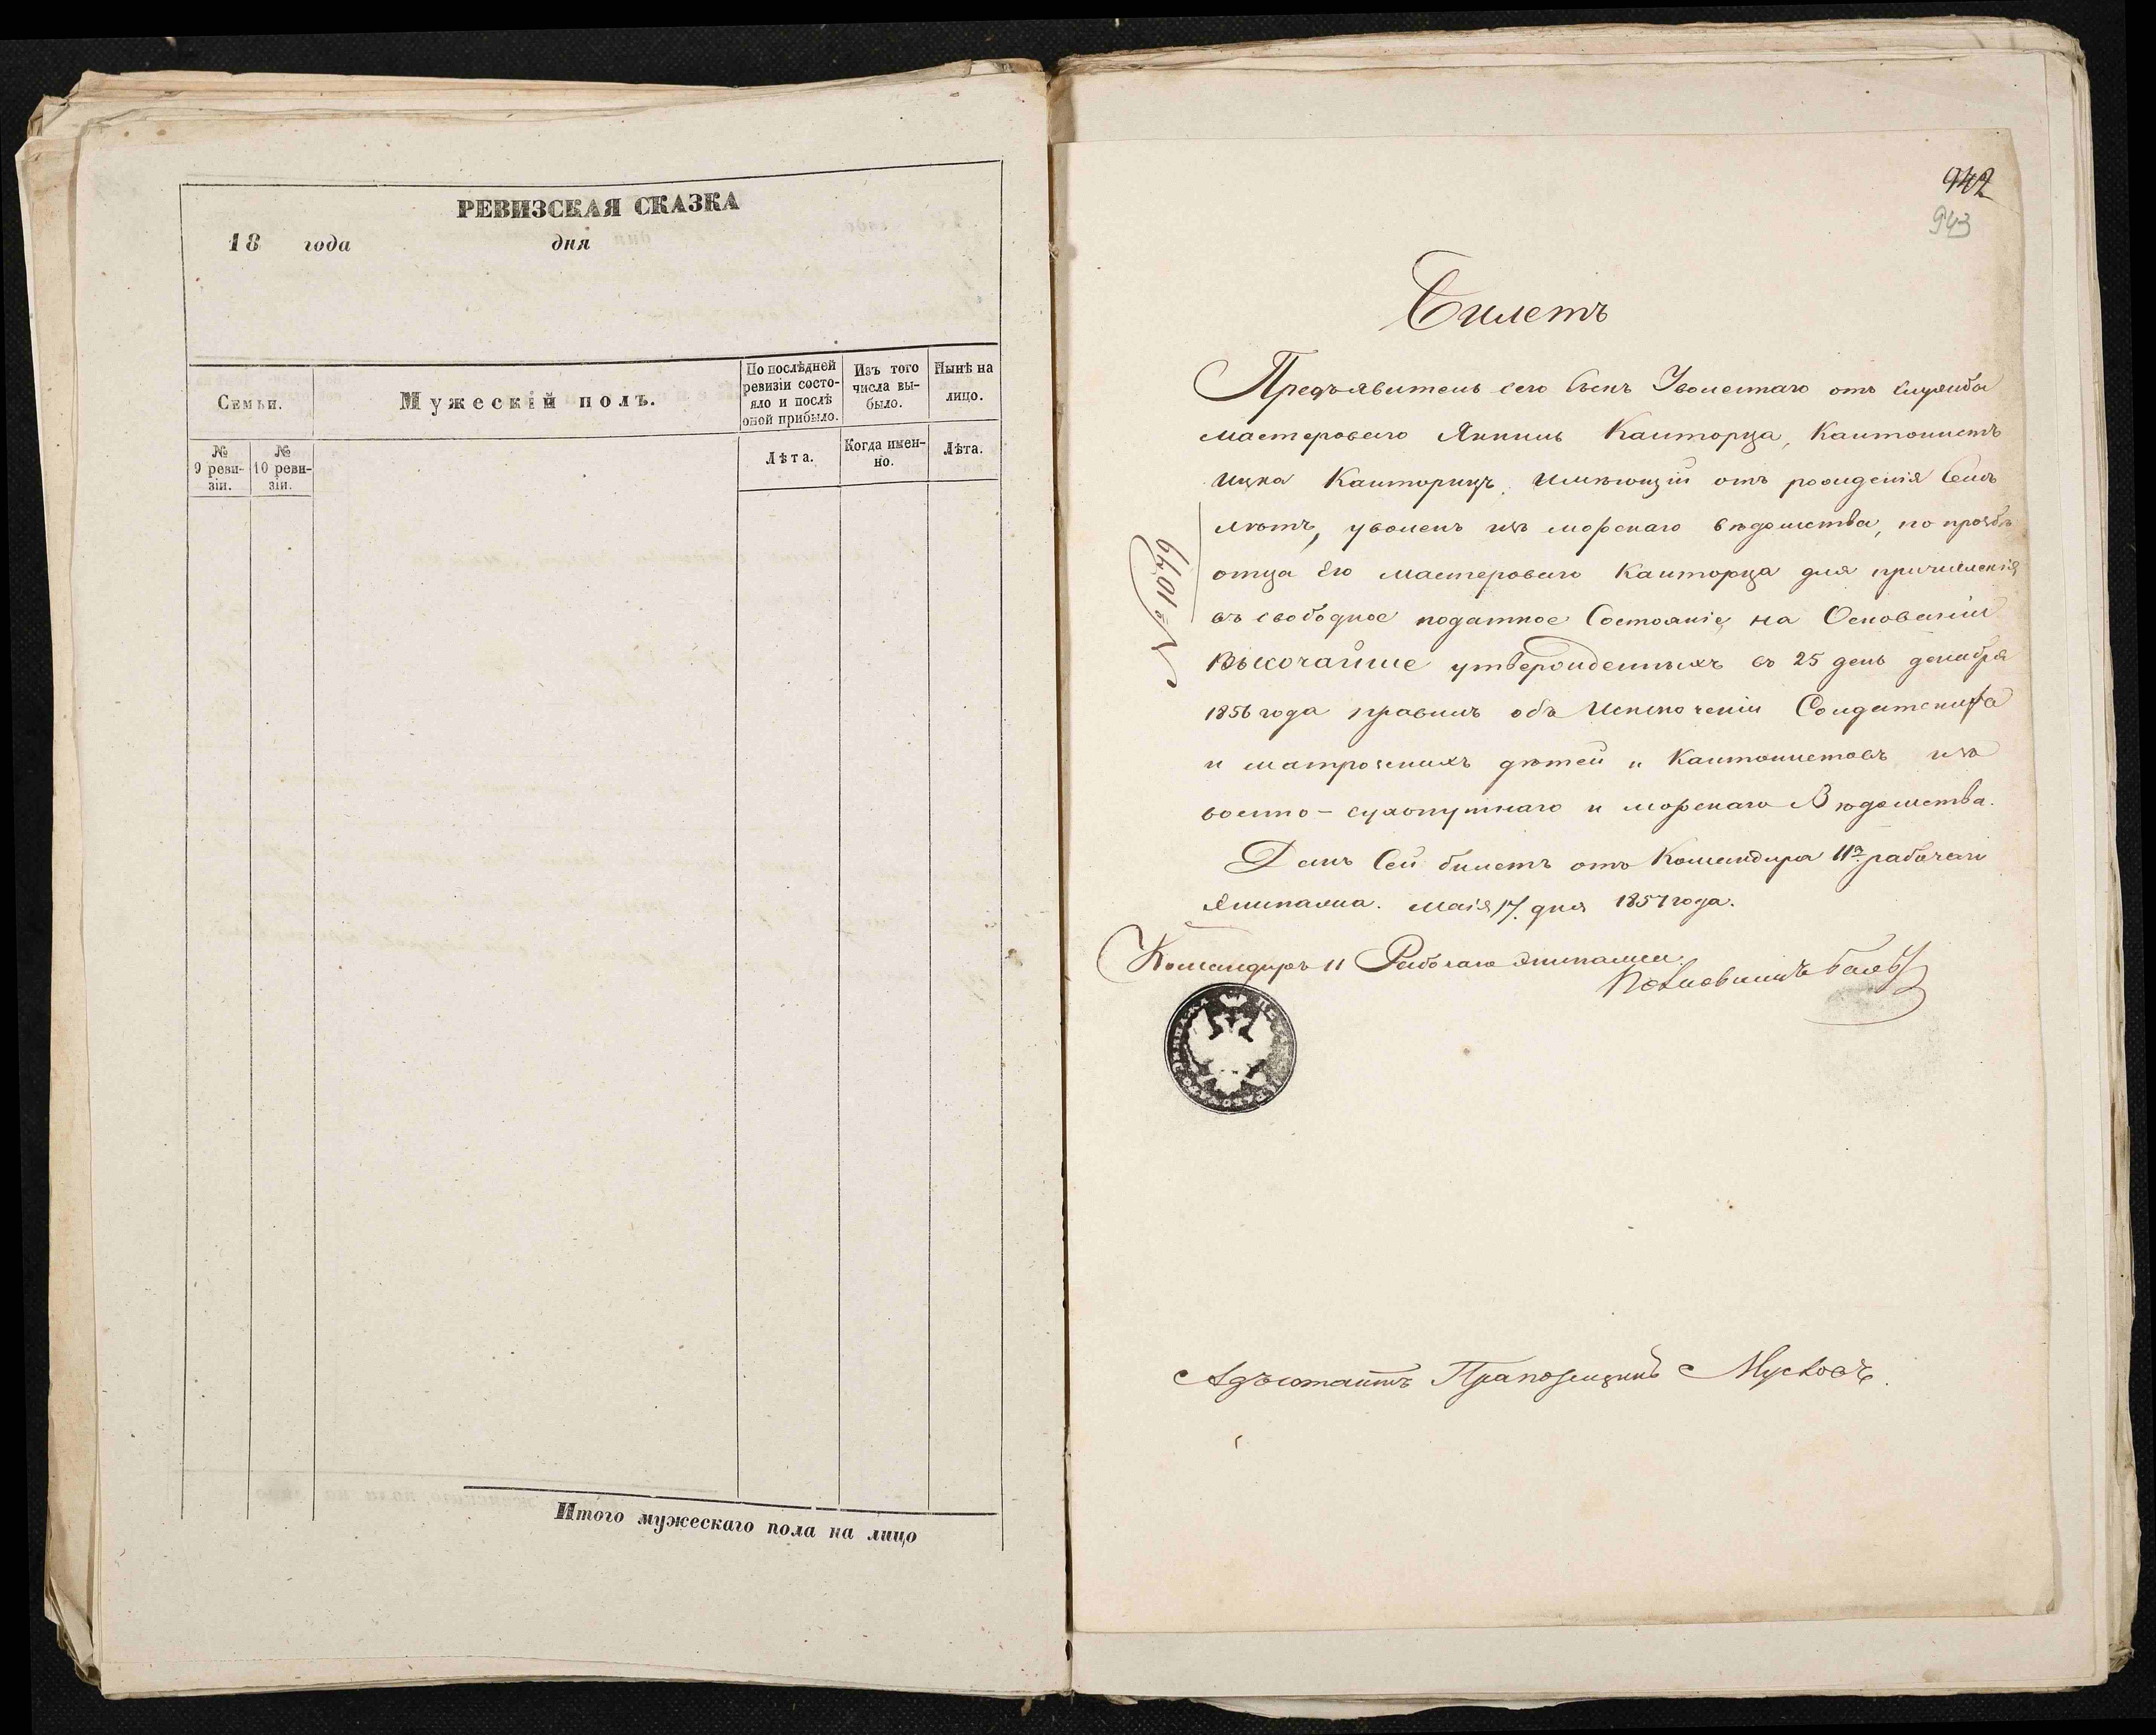 РЕВИЗСКАЯ СКАЗКА
18 года дня
Семьи.
Мужескій полъ.
По послѣдней ревизіи состояло и послѣ оной прибыло.
Изъ того числа выбыло.
Нынѣ на лицо.
№ 9 ревизіи.
№ 10 ревизіи.
Лѣта.
Когда именно.
Лѣта.
Итого мужескаго пола на лицо
942
943
Билетъ
Предъявитель сего Сынъ Уволеннаго отъ службы
мастероваго Янкиль Канторца, Кантонистъ
Ицка Канторицъ, имѣющій отъ рожденія Семь
лѣтъ, уволенъ изъ морскаго вѣдомства, по прозбѣ
отца Его мастероваго Канторца для причисленія
въ свободное податное Состояніе, на Основаніи
Высочайше утвержденныхъ въ 25 день декабря
1856 года правилъ объ Исключеніи Солдатскихъ
и матроскихъ дѣтей и Кантонистовъ изъ
военно-сухопутнаго и морскаго Вѣдомства.
Данъ Сей билетъ отъ Командира 11го рабочаго
Экипажа. Маія 17. дня 1857 года.
№ 1049
Командиръ 11 Рабочаго Экипажа.
Адъютантъ Прапорщикъ